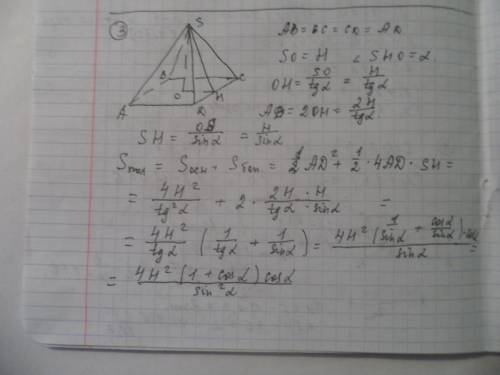 ③
S
A
B
C
D
O
H
AB = BC = CD = AD
SO = H ∠SHO = α.
OH = SO/tgα = H/tgα
AB = 2OH = 2H/tgα.
SH = OS/sinα = H/sinα
Sпол = Sосн + Sбок = AD² + 1/2 · 4AD · SH =
= 4H²/tg²α + 2 · 2H · H/tgα · sinα =
= 4H²/tgα (1/tgα + 1/sinα) = 4H² (1/sinα + cosα/sinα) · cosα/sinα =
= 4H² (1 + cosα) cosα/sin²α